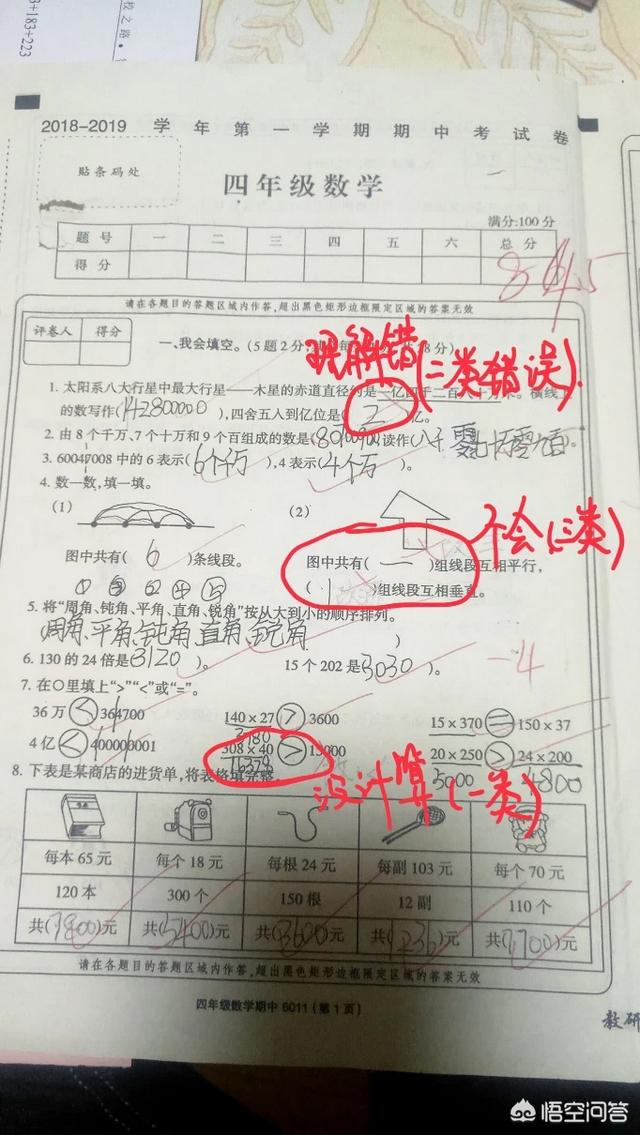 校之路·
3+183+223
2018-2019 学年第一学期期中考试卷
贴条码处
四年级数学
满分:100分
题号 一 二 三 四 五 六 总分
得分
请在各题目的答题区域内作答,超出黑色矩形边框限定区域的答案无效
评卷人 得分
一、我会填空。(5题2分,
8分)
理解错(二类错误).
1. 太阳系八大行星中最大行星——木星的赤道直径约是一亿四千二百八十万米。横线上
的数写作(142800000),四舍五入到亿位是(2)亿。
2. 由8个千万、7个十万和9个百组成的数是(
)读作(
)。
3. 60047008中的6表示(6个千万),4表示(4个万)。
4. 数一数,填一填。
(1) (2)
不会(三类)
图中共有(6)条线段。 图中共有(一)组线段互相平行,
( )组线段互相垂直。
5. 将“周角、钝角、平角、直角、锐角”按从大到小的顺序排列。
周角、平角、钝角、直角、锐角 )
6. 130的24倍是(3120)。 15个202是(3030)。
-4
7. 在○里填上“>”“<”或“=”。
36万<364700 140×27>3600 15×370=150×37
4亿<400000001 308×40>13000 20×250>24×200
5000 4800
没计算(一类)
8. 下表是某商店的进货单,将表格填完整。
每本65元 每个18元 每根24元 每副103元 每个70元
120本 300个 150根 12副 110个
共(7800)元 共(5400)元 共(3600)元 共(1236)元 共(7700)元
请在各题目的答题区域内作答,超出黑色矩形边框限定区域的答案无效
四年级数学期中 6011(第1页)
教研
悟空问答